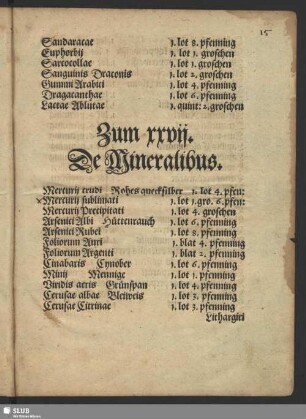 15
Sandaracae 1. lot 8. pfenning
Euphorbij 1. lot 1. groschen
Sarcocollae 1. lot 1. groschen
Sanguinis Draconis 1. lot 2. groschen
Gummi Arabici 1. lot 4. pfenning
Dragacanthae 1. lot 6. pfenning
Laccae Ablutae 1. quint: 2. groschen
Zum xxvij.
De Mineralibus.
Mercurij crudi Rohes quecksilber 1. lot 4. pfen:
Mercurij sublimati 1. lot 1. gro. 6. pfen:
Mercurij Precipitati 1. lot 4. groschen
Arsenici Albi Hüttenrauch 1. lot 6. pfenning
Arsenici Rubei 1. lot 8. pfenning
Foliorum Auri 1. blat 4. pfenning
Foliorum Argenti 1. blat 2. pfenning
Cinabaris Cynober 1. lot 6. pfenning
Minij Mennige 1. lot 1. pfenning
Viridis aeris Grünspan 1. lot 4. pfenning
Cerusae albae Bleiweis 1. lot 3. pfenning
Cerusae Citrinae 1. lot 3. pfenning
Lithargiri
SLUB
Wir führen Wissen.